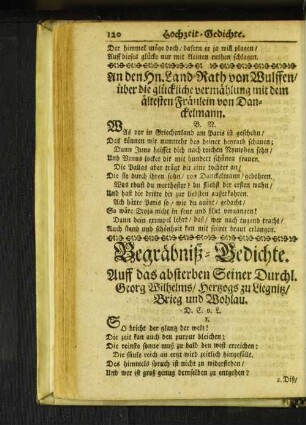 120 Hochzeit-Gedichte.
Der himmel möge doch/ dafern er ja will plagen/
Auff dieses glücke nur mit kleinen ruthen schlagen.
An den Hn. Land-Rath von Wulffen/
über die glückliche vermählung mit dem
ältesten Fräulein von Dan-
ckelmann.
B. N.
WAs vor in Griechenland am Paris ist geschehn/
Das können wir nunmehr bey deiner heyrath schauen;
Dann Juno heisset dich nach reichen Aemtern sehn/
Und Venus locket dich mit hundert schönen frauen.
Die Pallas aber trägt dir eine tochter an/
Die sie durch ihren sohn/ von Danckelmann/ gebohren.
Was thust du werthester? du fliehst der ersten wahn/
Und hast die dritte dir zur liebsten auserkohren.
Ach hätte Paris so/ wie du anitzt/ gedacht/
So wäre Troja nicht in feur und blut umbkommen!
Dann dem gemahl lebet/ der/ wer nach tugend tracht/
Auch stand und schönheit hat mit seiner braut erlangen.
Begräbniß-Gedichte.
Auff das absterben Seiner Durchl.
Georg Wilhelms/ Hertzogs zu Liegnitz/
Brieg und Wohlau.
D. C. v. L.
1.
SO bricht der glantz der welt!
Die zeit kan auch den purpur bleichen;
Die reinste sonne muß zu bald den west erreichen;
Die säule reich an ernt wird zeitlich hingefällt.
Des himmels spruch ist nicht zu widerstehen/
Und wer ist groß genug demselben zu entgehen?
2. Diß/